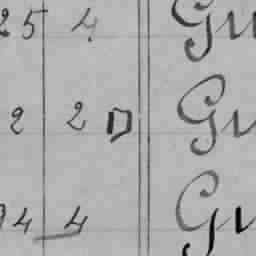 25 4 Gu
2 2 D Gu
94 4 Gu